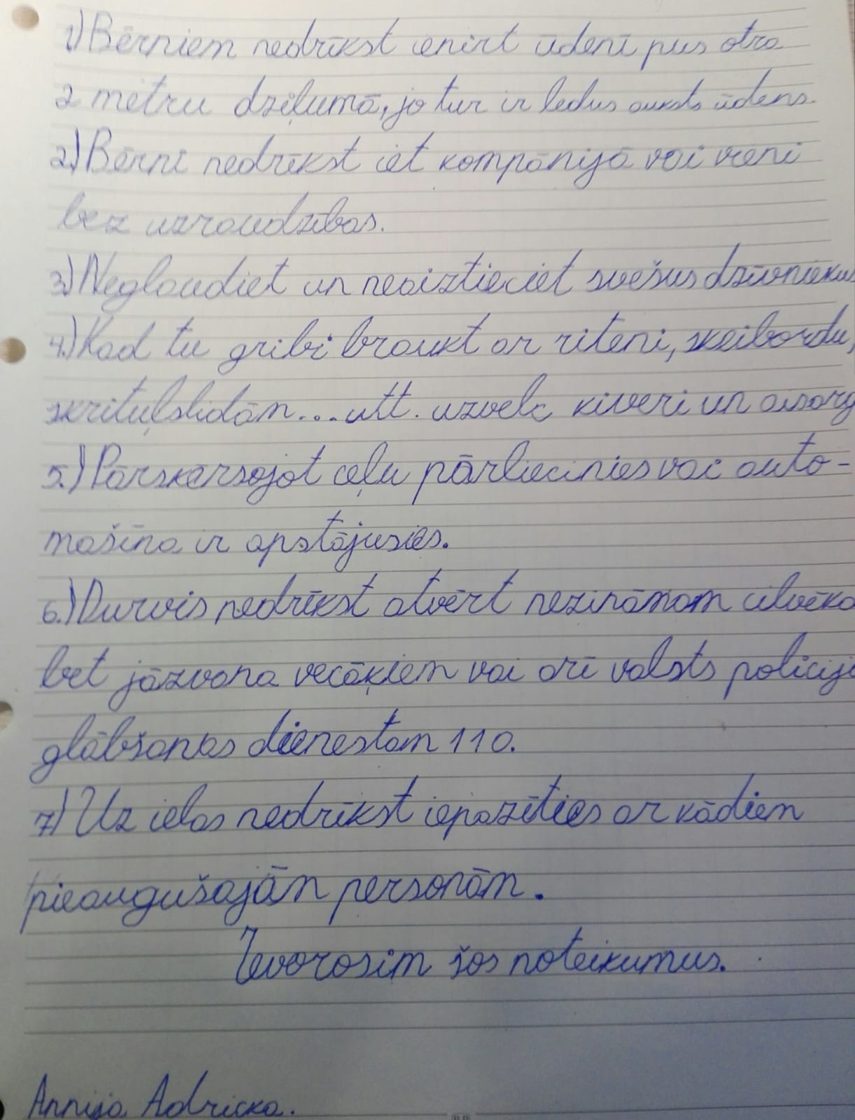 1) Bērniem nedrīkst ienirt ūdenī pus otra
2 metru dziļumā, jo tur ir ledus auksts ūdens.
2) Bērni nedrīkst iet kompānijā vai vieni
bez uzraudzības.
3.) Neglaudiet un neaiztieciet svešus dzīvniekus
4.) Kad tu gribi braukt ar riteni, skeibordu,
skrituļslidām... utt. uzvelc ķiveri un aizsarg
5.) Pārskērsojot ceļu pārliecinies vai auto-
mašīna ir apstājusies.
6.) Durvis nedrīkst atvērt nezināmam cilvēka
bet jāzvana vecākiem vai arī valsts policija
glābšanas dienestam 110.
7.) Uz ielas nedrīkst iepazīties ar kādiem
pieaugušajām personām.
Ievorosim šos noteikumus.
Annija Adricka.